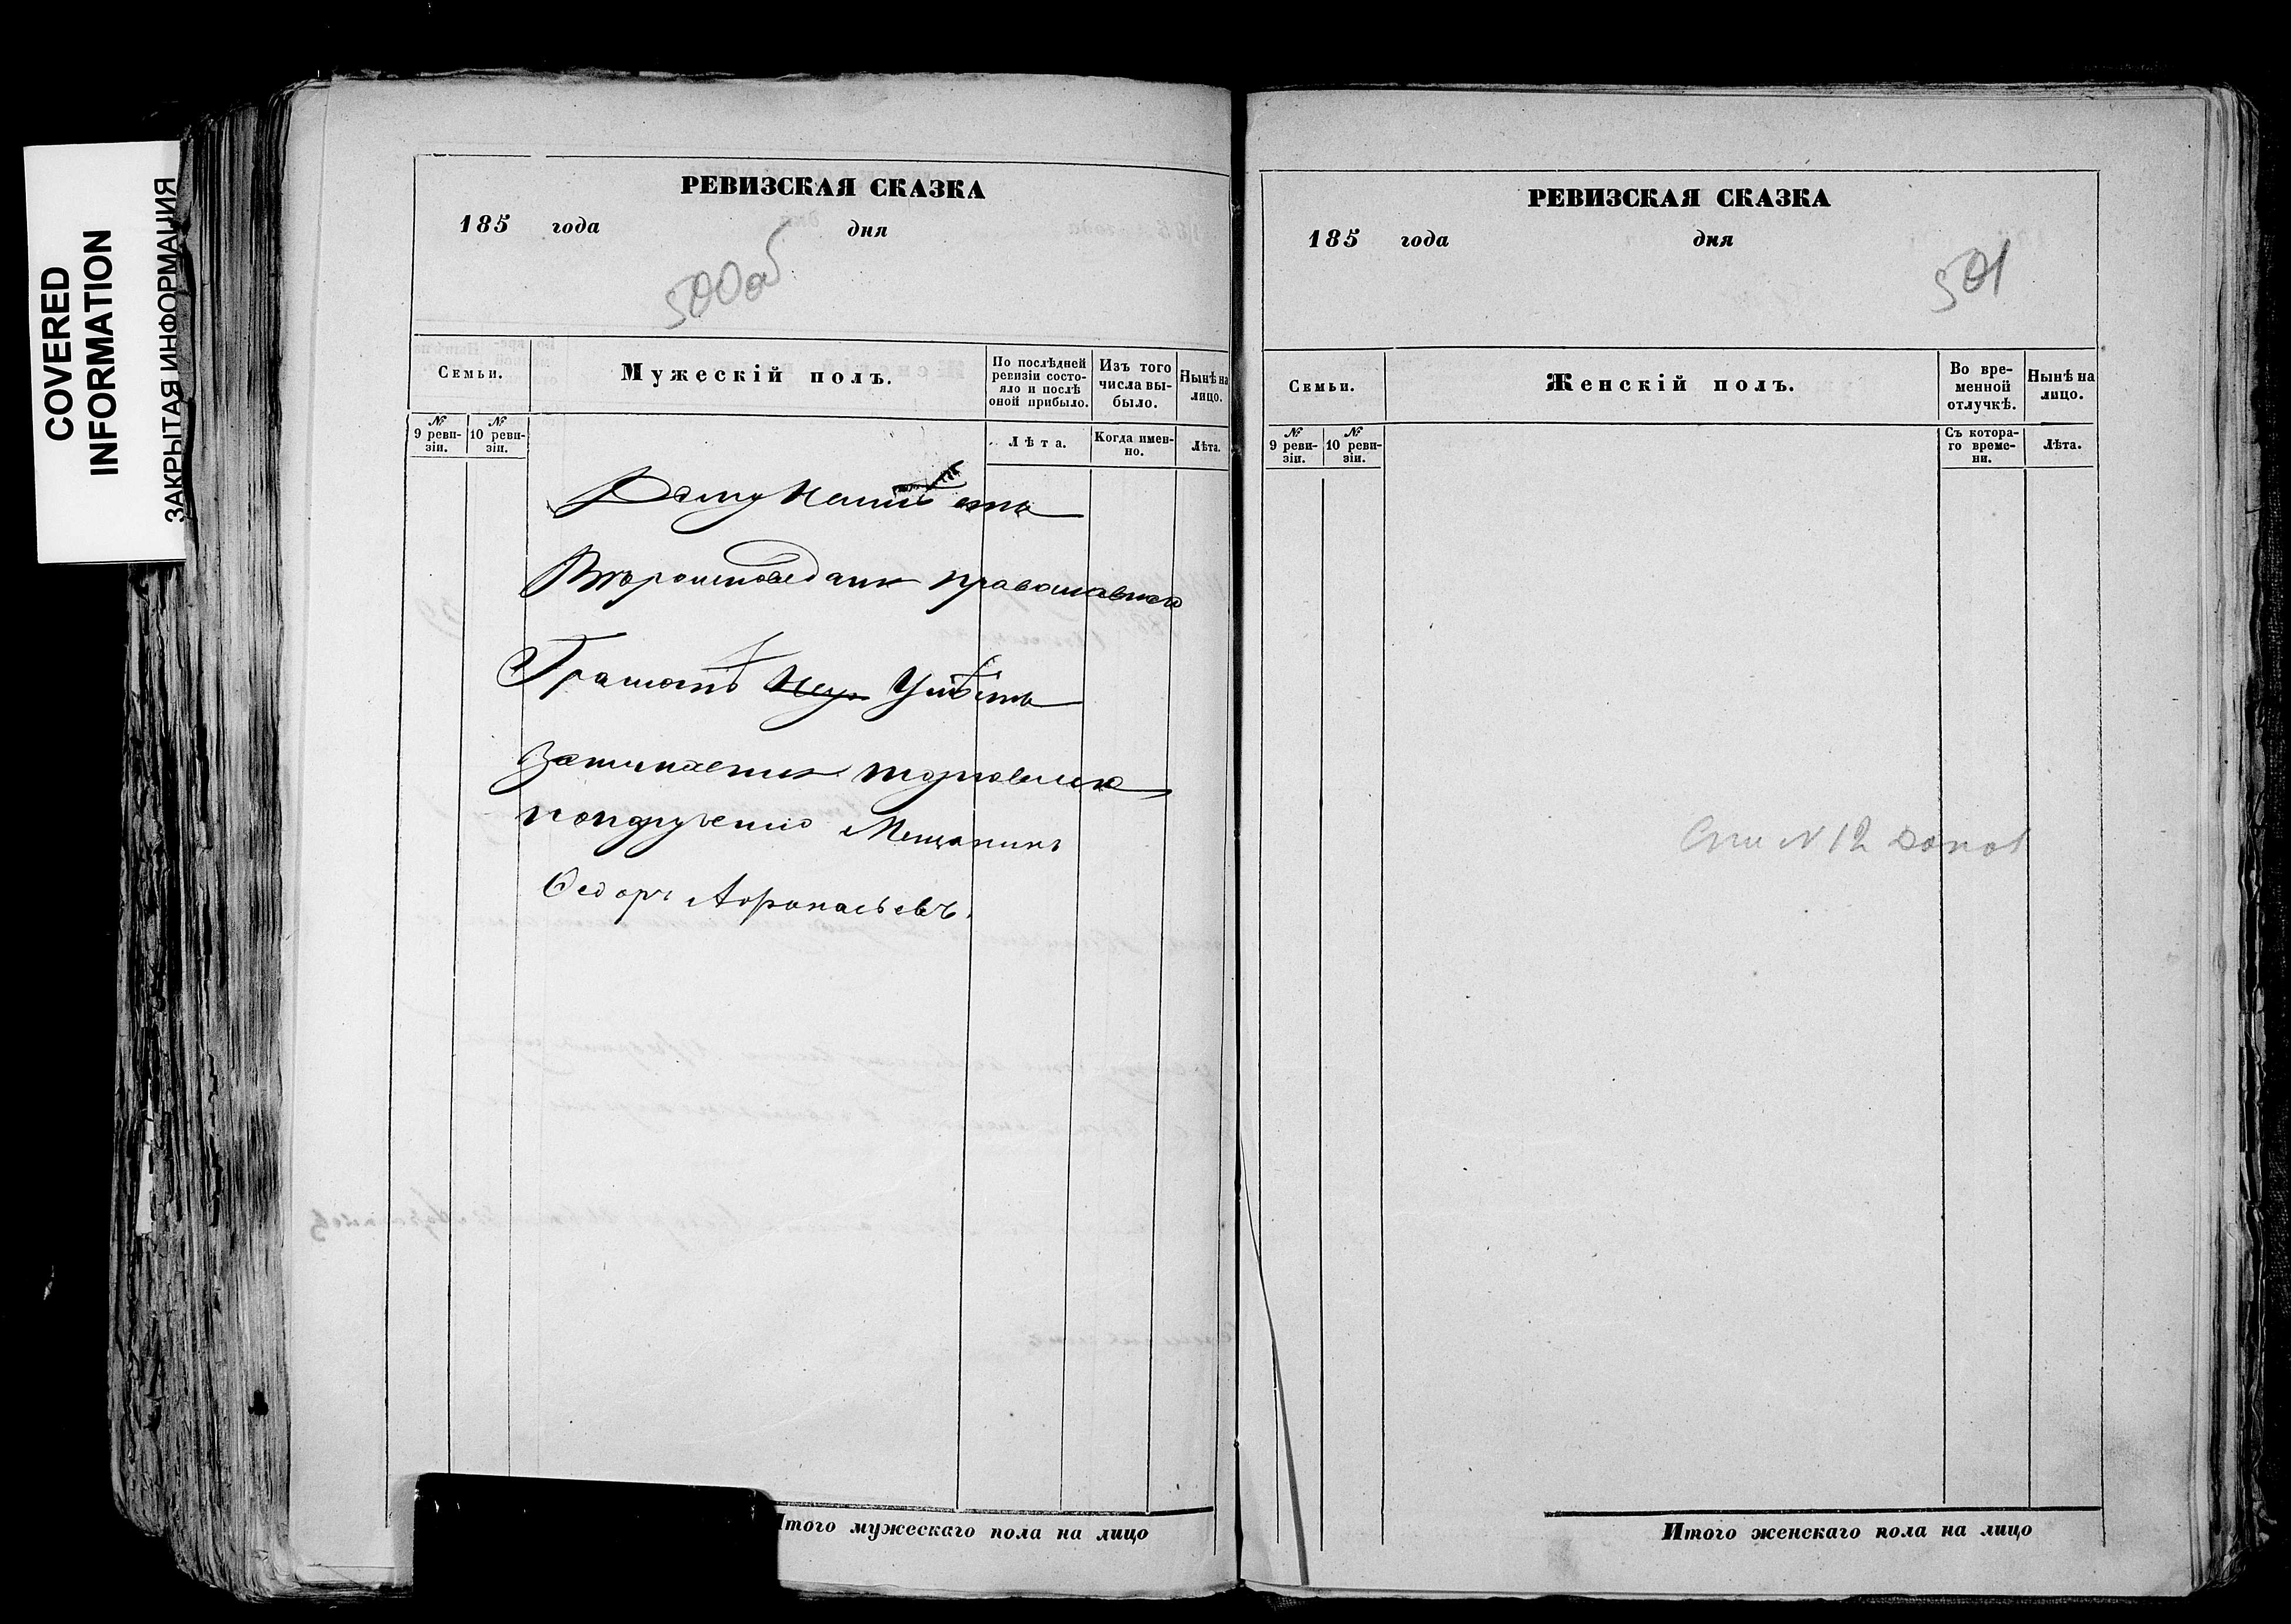 COVERED
INFORMATION
ЗАКРЫТАЯ ИНФОРМАЦИЯ
РЕВИЗСКАЯ СКАЗКА
185 года дня
500об
Семьи.
Мужескій полъ.
По послѣдней ревизіи состояло и послѣ оной прибыло.
Изъ того числа выбыло.
Нынѣ на лицо.
№ 9 ревизіи.
№ 10 ревизіи.
Лѣта.
Когда именно.
Лѣта.
Вѣроисповеданія православнаго
Грамотѣ Умѣетъ
Занимается торговлею
Мещанинъ
Федоръ Афонасьевъ.
Итого мужескаго пола на лицо
РЕВИЗСКАЯ СКАЗКА
185 года дня
501
Семьи.
Женскій полъ.
Во временной отлучкѣ.
Нынѣ на лицо.
№ 9 ревизіи.
№ 10 ревизіи.
Съ котораго времени.
Лѣта.
N 12
Итого женскаго пола на лицо